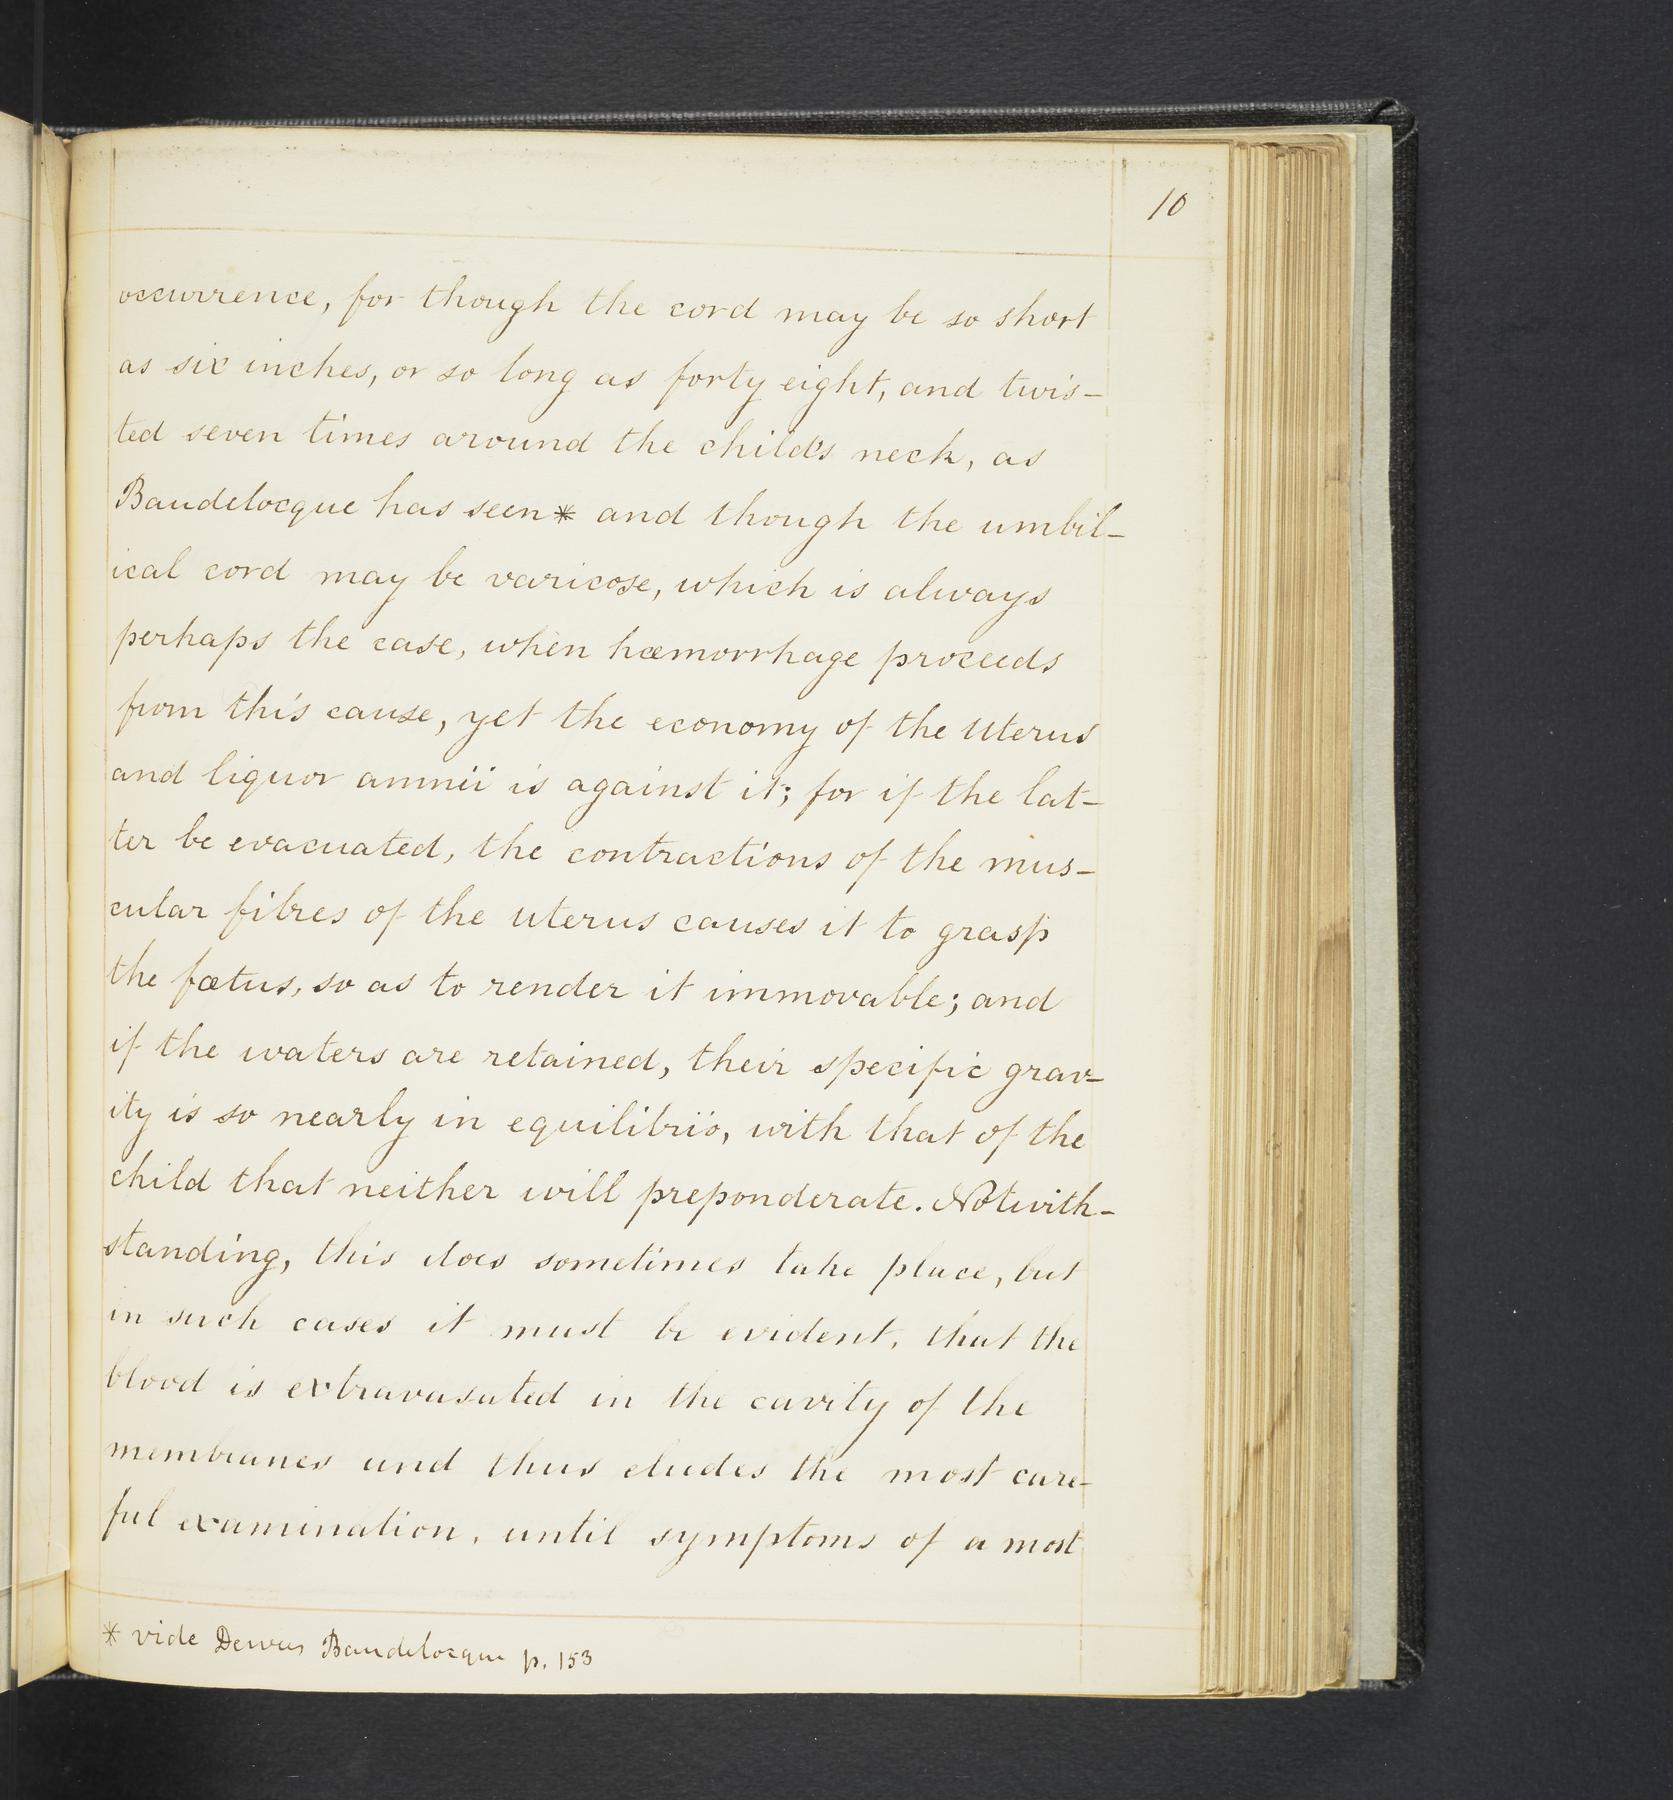 10
occurrence, for though the cord may be so short
as six inches, or so long as forty eight, and twis-
ted seven times around the child's neck, as
Baudelocque has seen* and though the umbil-
ical cord may be varicose, which is always
perhaps the case, when hæmorrhage proceeds
from this cause, yet the economy of the uterus
and liquor amnii is against it; for if the lat-
ter be evacuated, the contractions of the mus-
cular fibres of the uterus causes it to grasp
the fœtus, so as to render it immovable; and
if the waters are retained, their specific grav-
ity is so nearly in equilibrio, with that of the
child that neither will preponderate. Notwith-
standing, this does sometimes take place, but
in such cases it must be evident, that the
blood is extravasated in the cavity of the
membranes and thus eludes the most care-
ful examination, until symptoms of a most
* vide Dewees Baudelocque p. 153